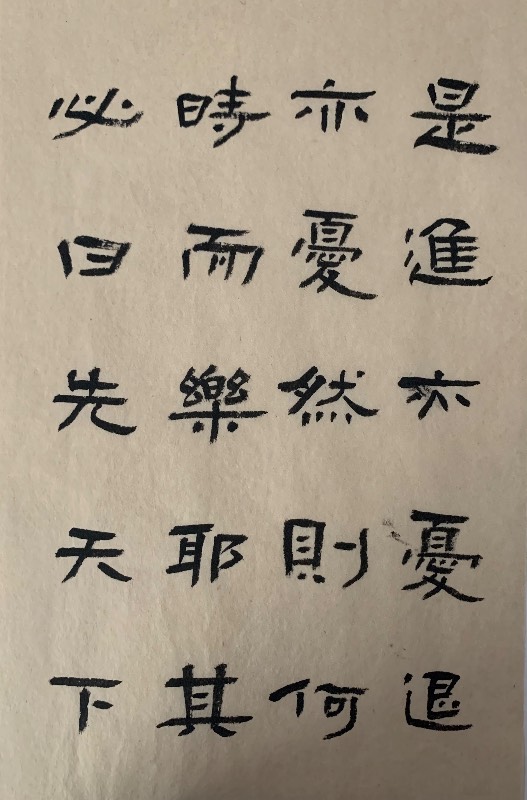 是進亦憂退
亦憂然則何
時而樂耶其
必曰先天下